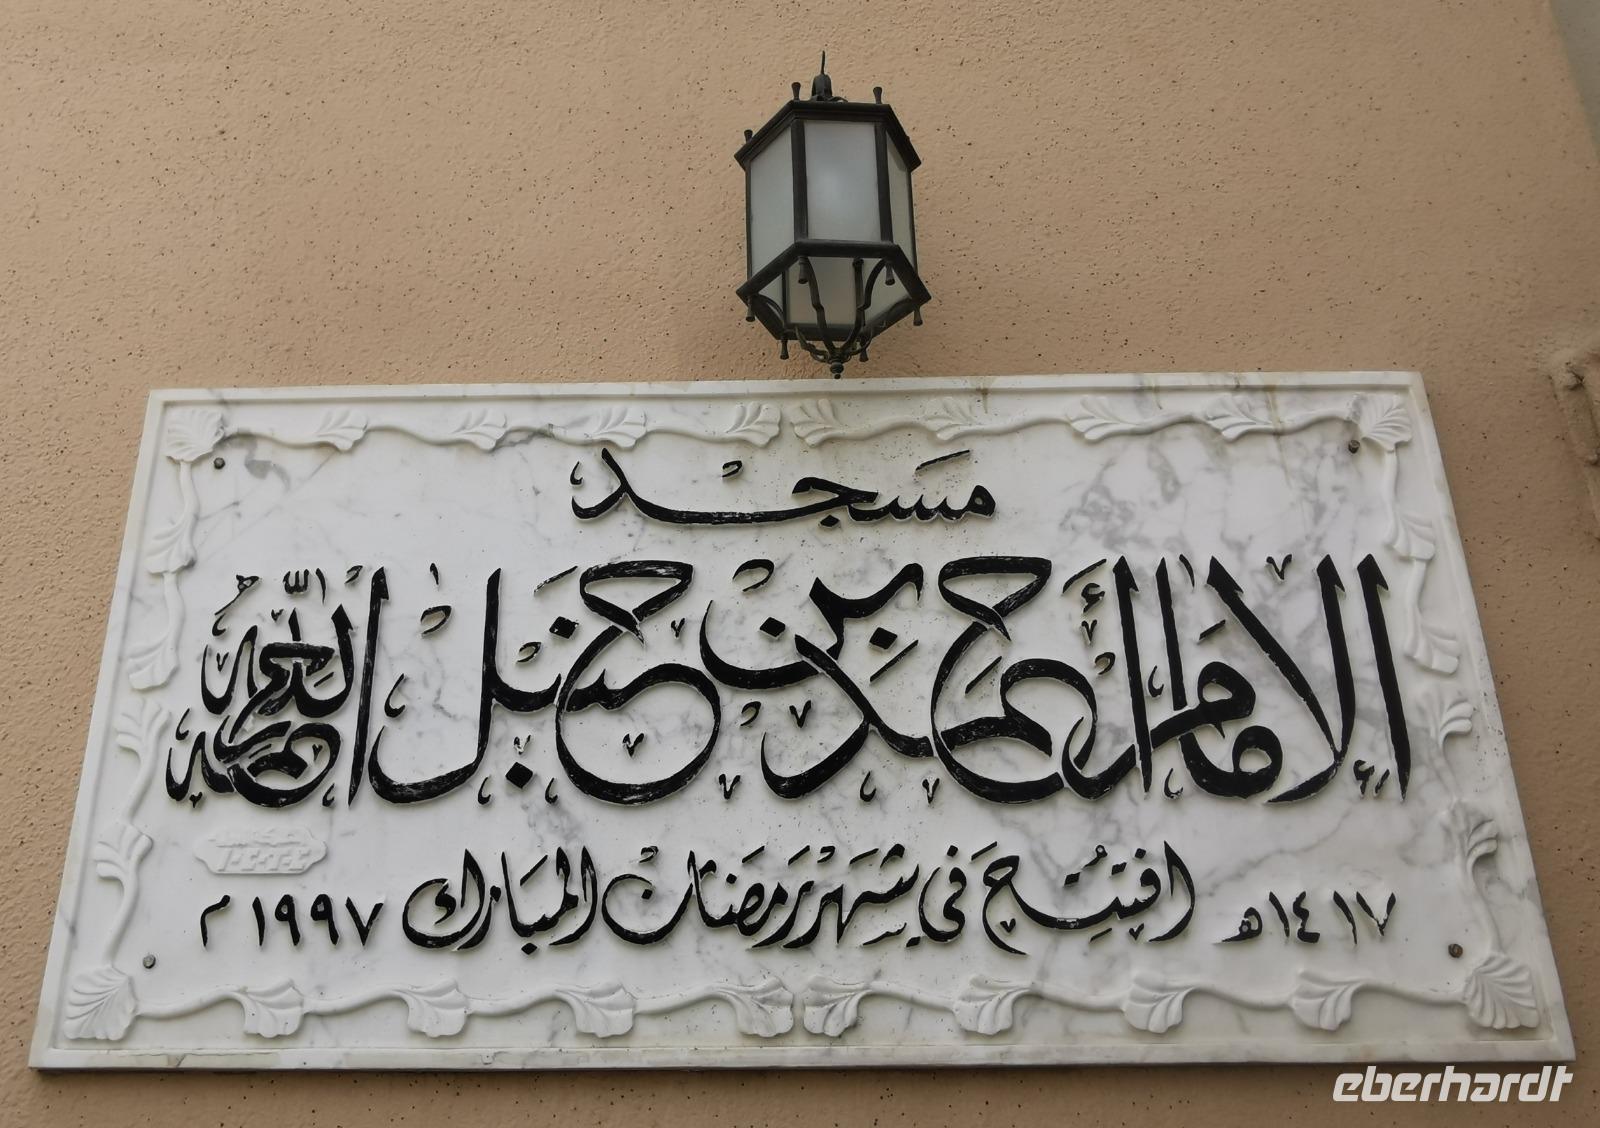 مسجد
الإمام أحمد بن حنبل رحمه الله
١٤١٧هـ افتتح في شهر رمضان المبارك ١٩٩٧م
eberhardt